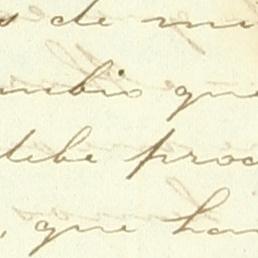 s de mi
mbio que
debe proc
, que han